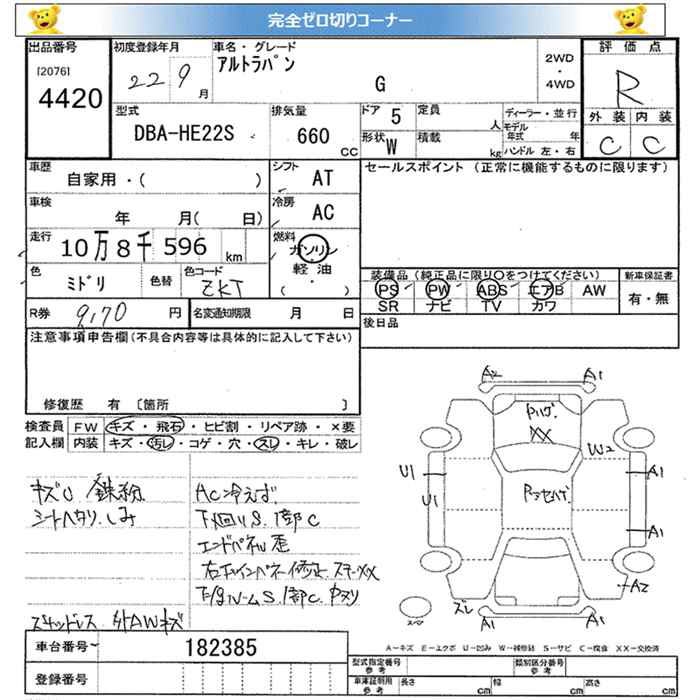 完全ゼロ切りコーナー
出品番号
[2076]
4420
初度登録年月
22 9月
車名・グレード
アルトラパン
G
2WD
・
4WD
評価点
R
外装 内装
C C
型式
DBA-HE22S
排気量
660
CC
ドア 5
形状 W
定員
人
積載
kg
ディーラー・並行
モデル年式 年
ハンドル 左・右
車歴
自家用・( )
シフト
AT
セールスポイント (正常に機能するものに限ります)
車検
年 月( 日)
冷房
AC
走行
10万8千596 km
燃料
ガソリン
軽油
( ・ )
色
ミドリ
色替
色コード
ZKT
装備品 (純正品に限り○をつけてください)
PS PW ABS エアB AW
SR ナビ TV カワ
新車保証書
有・無
R券 9,170 円
名変通知期限 月 日
後日品
注意事項申告欄(不具合内容等は具体的に記入して下さい)
修復歴 有 〔箇所 〕
検査員記入欄
FW キズ・飛石・ヒビ割・リペア跡・×要
内装 キズ・汚レ・コゲ・穴・スレ・キレ・破レ
キズU 鉄粉
シートヘタリ、しみ
AC冷えず
下回りS、1部C
エンドパネル歪
スタッドレス 外AWキズ
A2 A1
XX
W2
U1
U1
A1
A1
A2
ズレ
A1 A1
A-キズ E-エクボ U-凹み W-補修跡 S-サビ C-腐食 XX-交換済
車台番号 182385
登録番号
型式指定番号 参考
類別区分番号 参考
車庫証明用 参考 長さ cm 幅 cm 高さ cm